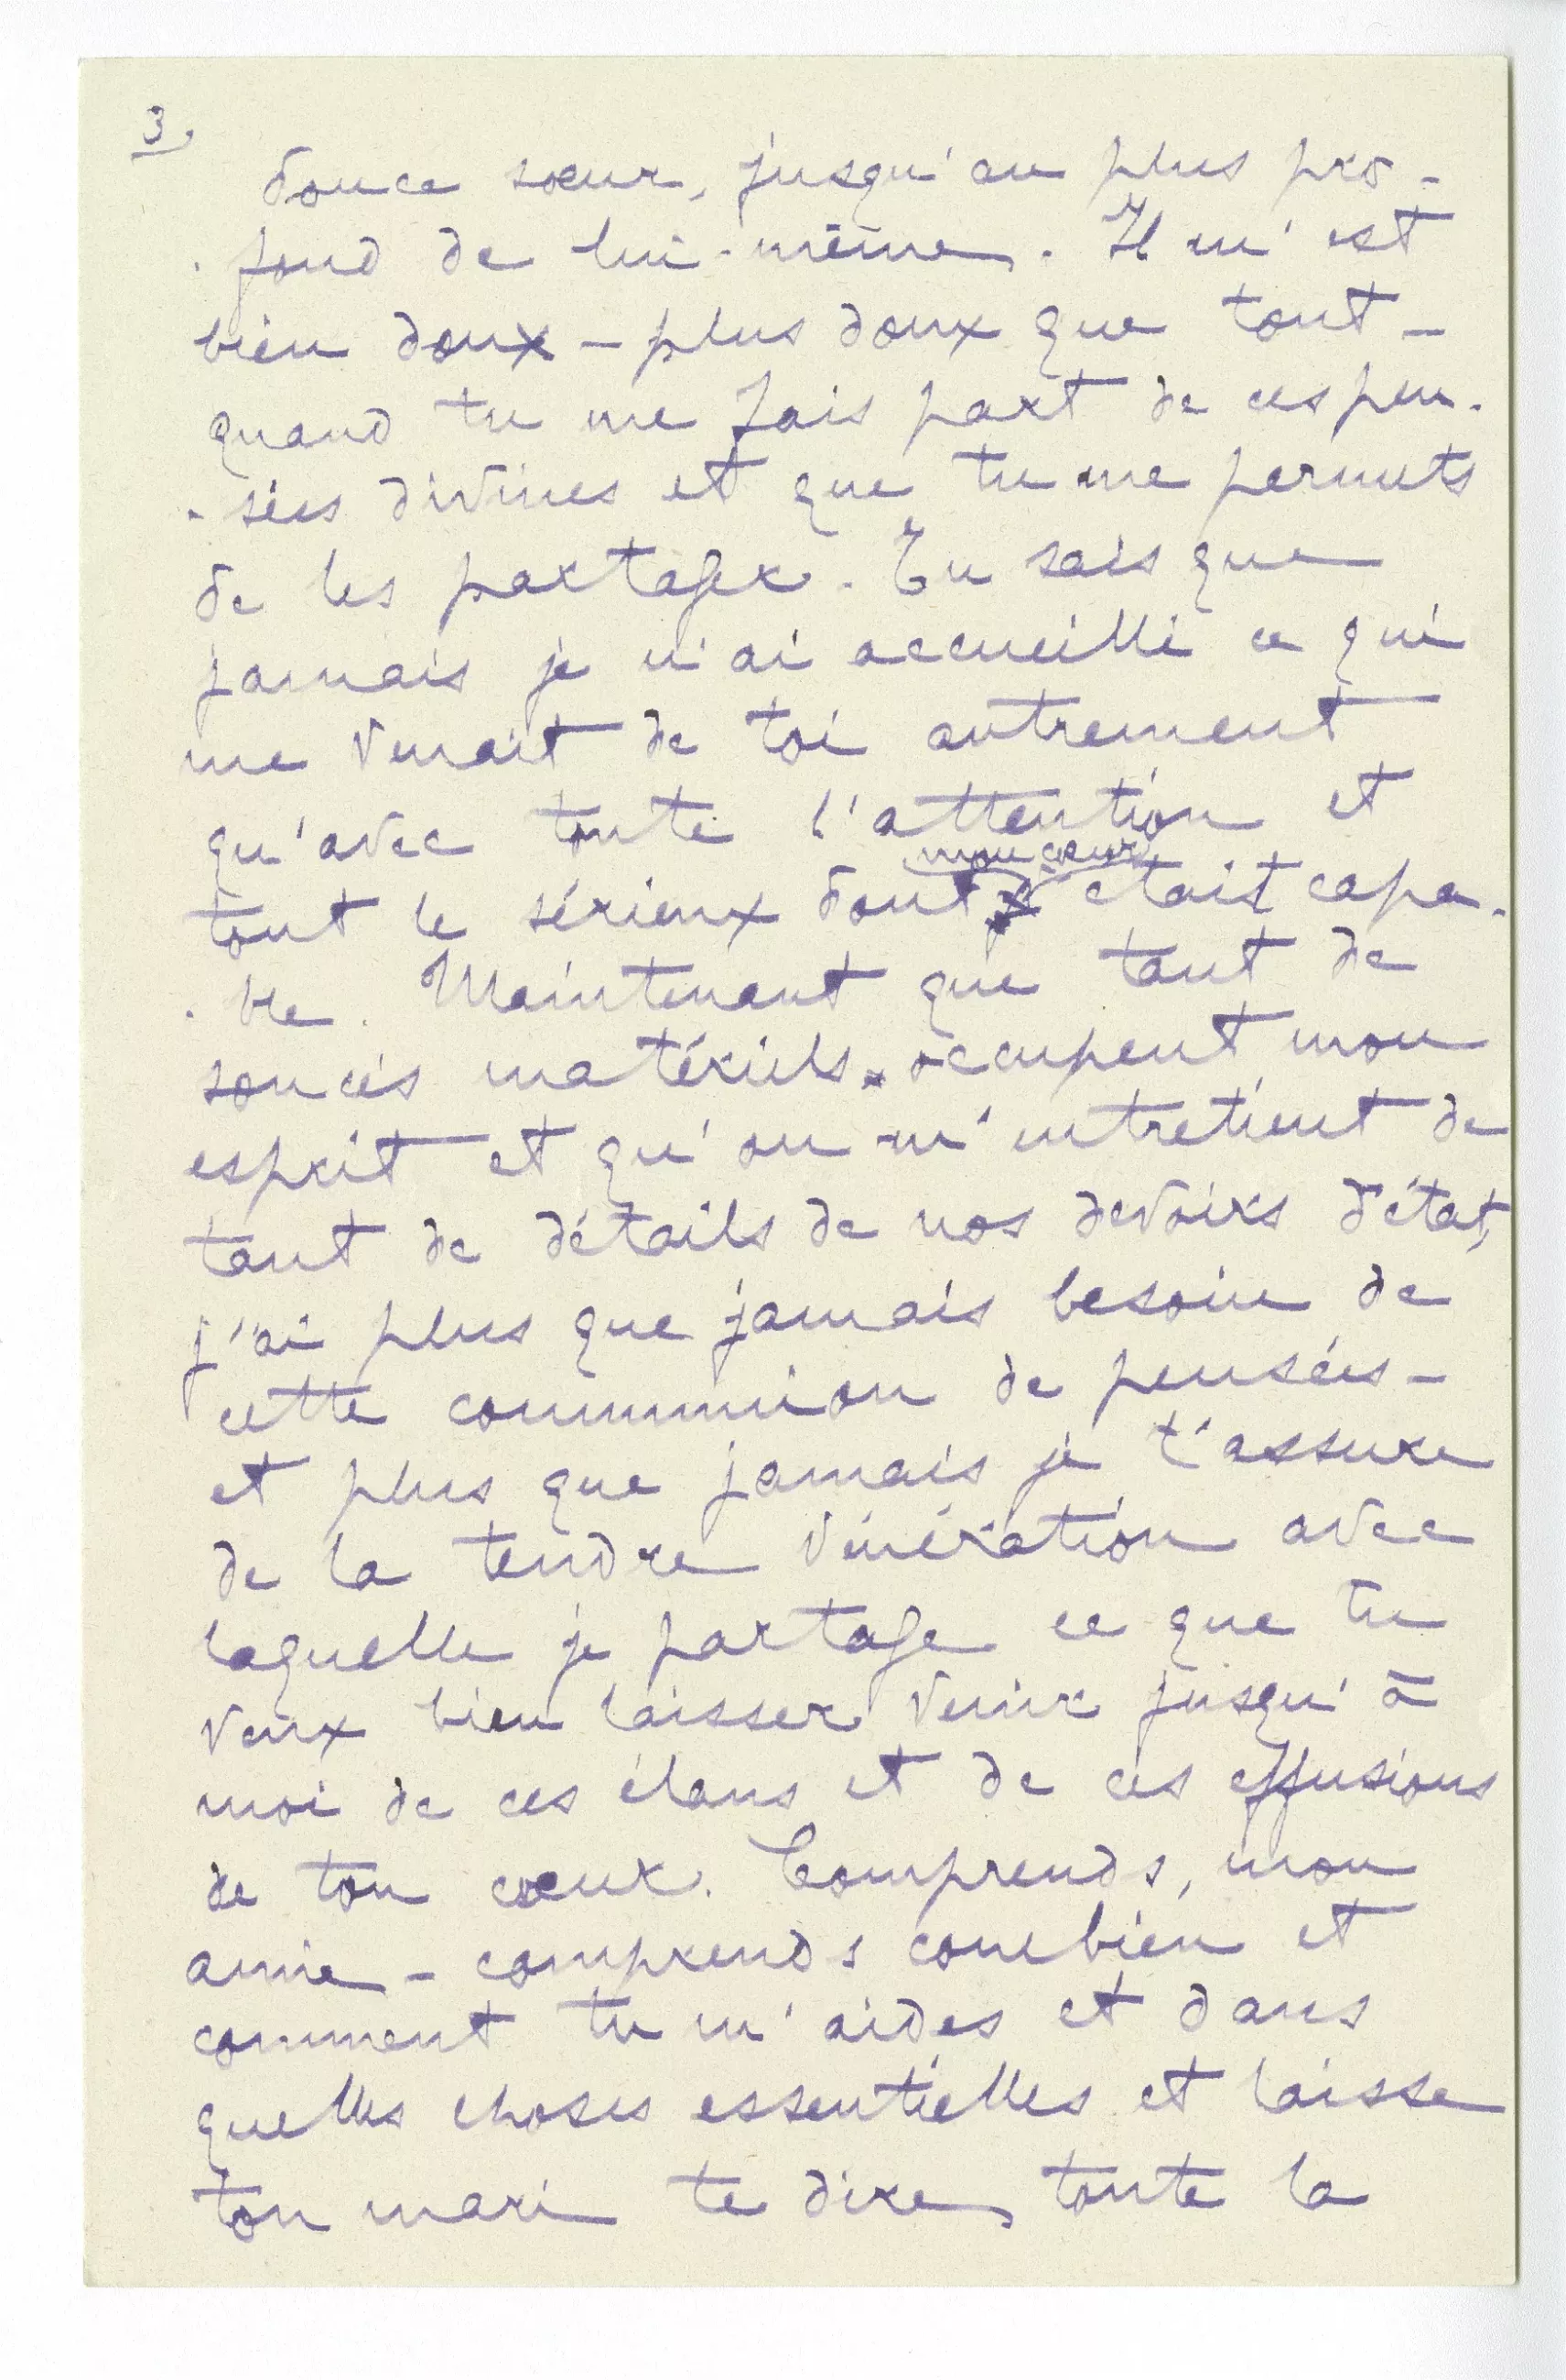 3.
douce sœur, jusqu'au plus pro-
-fond de lui-même. Il m'est
bien doux - plus doux que tout -
quand tu me fais part de ces pen-
-sées divines et que tu me permets
de les partager. Tu sais que
jamais je n'ai accueilli ce qui
me venait de toi autrement
qu'avec toute l'attention et
mon cœur
tout le sérieux dont était capa-
-ble. Maintenant que tant de
soucis matériels occupent mon
esprit et qu'on m'entretient de
tant de détails de nos devoirs d'état,
j'ai plus que jamais besoin de
cette communion de pensées -
et plus que jamais je t'assure
de la tendre vénération avec
laquelle je partage ce que tu
veux bien laisser venir jusqu'à
moi de ces élans et de ces effusions
de ton cœur. Comprends, mon
amie - comprends combien et
comment tu m'aides et dans
quelles choses essentielles et laisse
ton mari te dire toute la